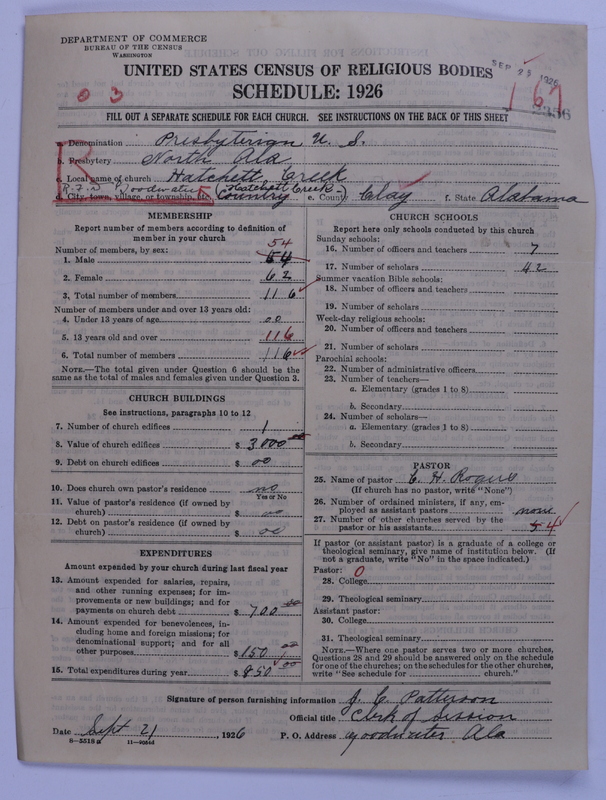 DEPARTMENT OF COMMERCE
BUREAU OF THE CENSUS
WASHINGTON
SEP 25 1926
UNITED STATES CENSUS OF RELIGIOUS BODIES
SCHEDULE: 1926
0 3
167
FILL OUT A SEPARATE SCHEDULE FOR EACH CHURCH. SEE INSTRUCTIONS ON THE BACK OF THIS SHEET
R
a. Denomination Presbyterian U. S.
b. Presbytery North Ala
c. Local name of church Hatchett Creek
R.F.D. Goodwater (Hatchett Creek)
d. City, town, village, or township, Country e. County Clay f. State Alabama
MEMBERSHIP
Report number of members according to definition of member in your church
Number of members, by sex: 54
1. Male 54
2. Female 62
3. Total number of members 116
Number of members under and over 13 years old:
4. Under 13 years of age 00
5. 13 years old and over 116
6. Total number of members 116
NOTE.—The total given under Question 6 should be the
same as the total of males and females given under Question 3.
CHURCH BUILDINGS
See instructions, paragraphs 10 to 12
7. Number of church edifices 1
8. Value of church edifices $ 3000 00
9. Debt on church edifices $ 00
10. Does church own pastor's residence no
Yes or No
11. Value of pastor's residence (if owned by
church) $ 00
12. Debt on pastor's residence (if owned by
church) $ 00
EXPENDITURES
Amount expended by your church during last fiscal year
13. Amount expended for salaries, repairs,
and other running expenses; for im-
provements or new buildings; and for
payments on church debt $ 700 00
14. Amount expended for benevolences, in-
cluding home and foreign missions; for
denominational support; and for all
other purposes $ 150 00
15. Total expenditures during year $ 850 00
CHURCH SCHOOLS
Report here only schools conducted by this church
Sunday schools:
16. Number of officers and teachers 7
17. Number of scholars 42
Summer vacation Bible schools:
18. Number of officers and teachers
19. Number of scholars
Week-day religious schools:
20. Number of officers and teachers
21. Number of scholars
Parochial schools:
22. Number of administrative officers
23. Number of teachers—
a. Elementary (grades 1 to 8)
b. Secondary
24. Number of scholars—
a. Elementary (grades 1 to 8)
b. Secondary
PASTOR
25. Name of pastor C. H. Rogers
(If church has no pastor, write "None")
26. Number of ordained ministers, if any, em-
ployed as assistant pastors none
27. Number of other churches served by the
pastor or his assistants 4
If pastor (or assistant pastor) is a graduate of a college or
theological seminary, give name of institution below. (If
not a graduate, write "No" in the space indicated.)
Pastor: 0
28. College
29. Theological seminary
Assistant pastor:
30. College
31. Theological seminary
NOTE.—Where one pastor serves two or more churches,
Questions 28 and 29 should be answered only on the schedule
for one of the churches; on the schedules for the other churches,
write "See schedule for church."
Signature of person furnishing information J. C. Patterson
Official title Clerk of Session
Date Sept 21, 1926 P. O. Address Goodwater Ala